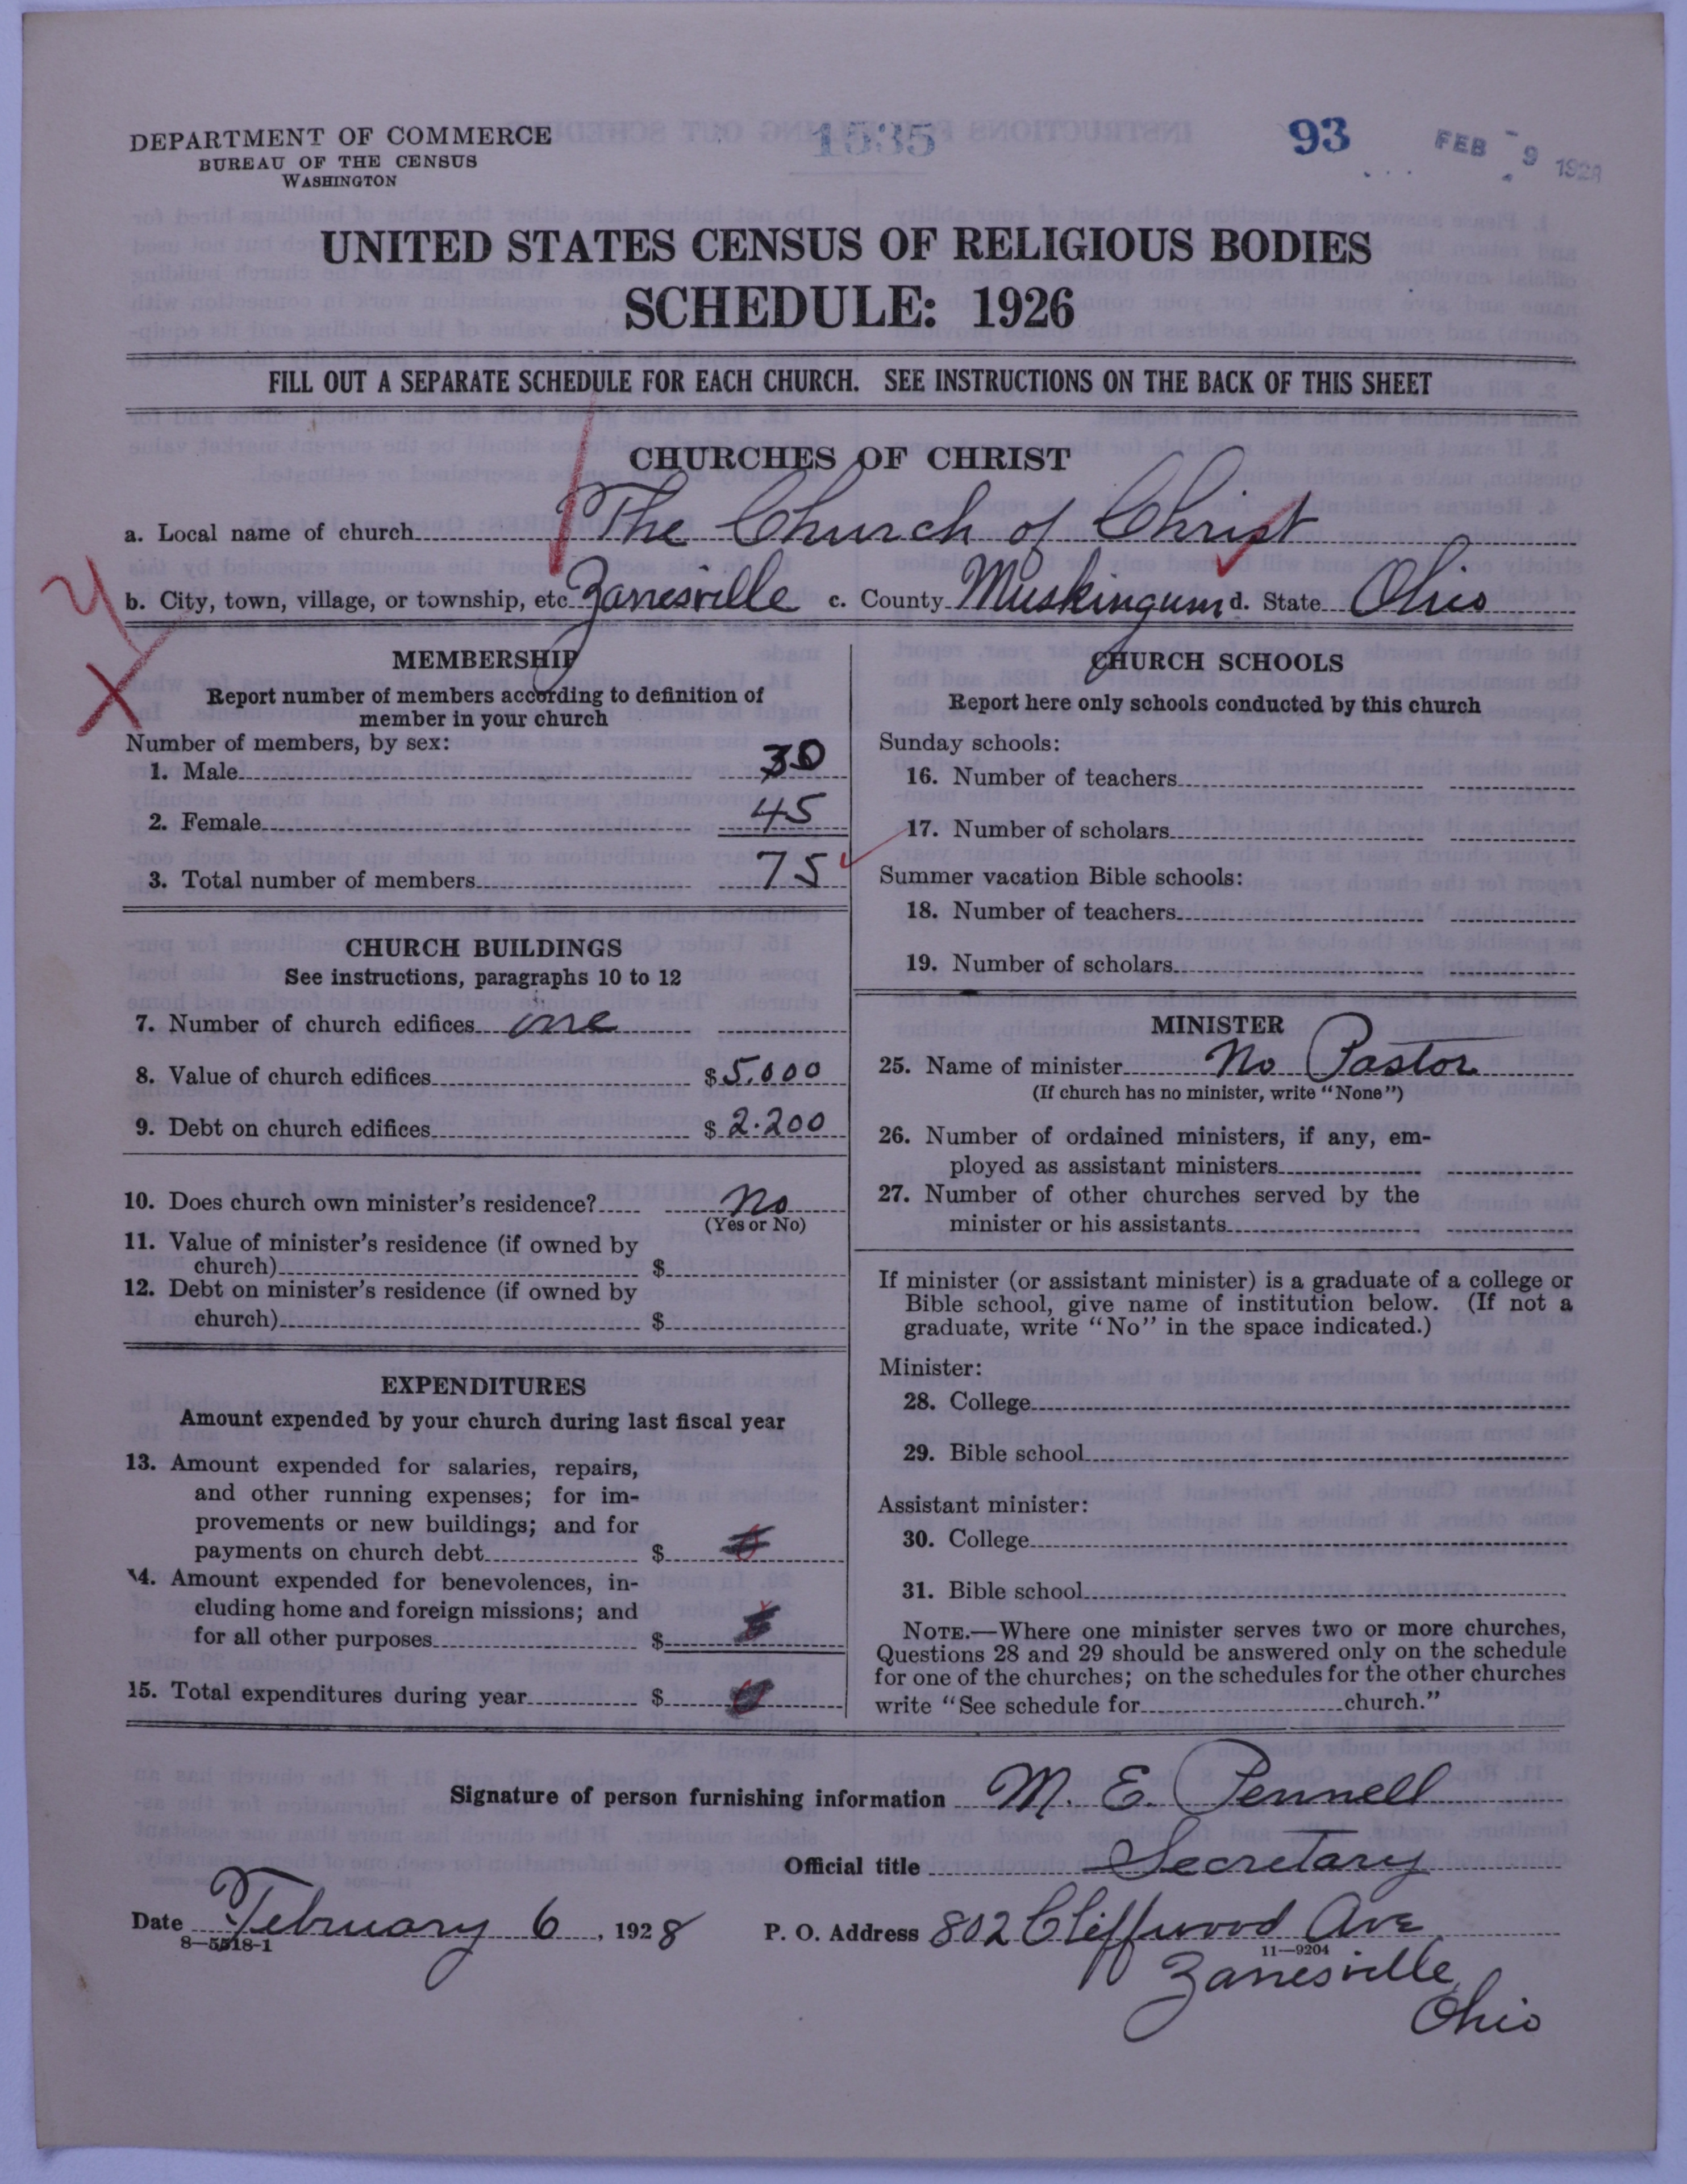 DEPARTMENT OF COMMERCE
BUREAU OF THE CENSUS
WASHINGTON
1535
93
FEB 9 1928
UNITED STATES CENSUS OF RELIGIOUS BODIES
SCHEDULE: 1926
FILL OUT A SEPARATE SCHEDULE FOR EACH CHURCH. SEE INSTRUCTIONS ON THE BACK OF THIS SHEET
CHURCHES OF CHRIST
a. Local name of church The Church of Christ
b. City, town, village, or township, etc. Zanesville c. County Muskingum d. State Ohio
MEMBERSHIP
Report number of members according to definition of
member in your church
Number of members, by sex:
1. Male 30
2. Female 45
3. Total number of members 75
CHURCH BUILDINGS
See instructions, paragraphs 10 to 12
7. Number of church edifices one
8. Value of church edifices $ 5.000
9. Debt on church edifices $ 2.200
10. Does church own minister's residence? No
(Yes or No)
11. Value of minister's residence (if owned by
church) $
12. Debt on minister's residence (if owned by
church) $
EXPENDITURES
Amount expended by your church during last fiscal year
13. Amount expended for salaries, repairs,
and other running expenses; for im-
provements or new buildings; and for
payments on church debt $
14. Amount expended for benevolences, in-
cluding home and foreign missions; and
for all other purposes $
15. Total expenditures during year $
CHURCH SCHOOLS
Report here only schools conducted by this church
Sunday schools:
16. Number of teachers
17. Number of scholars
Summer vacation Bible schools:
18. Number of teachers
19. Number of scholars
MINISTER
25. Name of minister No Pastor
(If church has no minister, write "None")
26. Number of ordained ministers, if any, em-
ployed as assistant ministers
27. Number of other churches served by the
minister or his assistants
If minister (or assistant minister) is a graduate of a college or
Bible school, give name of institution below. (If not a
graduate, write "No" in the space indicated.)
Minister:
28. College
29. Bible school
Assistant minister:
30. College
31. Bible school
NOTE.—Where one minister serves two or more churches,
Questions 28 and 29 should be answered only on the schedule
for one of the churches; on the schedules for the other churches
write "See schedule for church."
Signature of person furnishing information M. E. Pennell
Official title Secretary
Date February 6, 1928 P. O. Address 802 Cliffwood Ave
8—5518-1
11—9204
Zanesville
Ohio